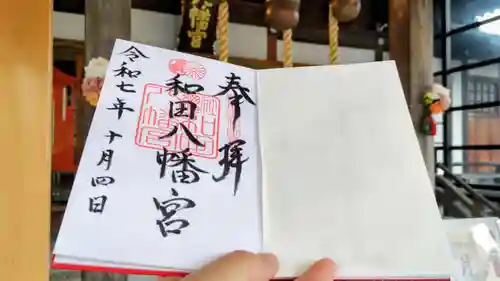 奉拝
和田八幡宮
令和七年十月四日
幡宮